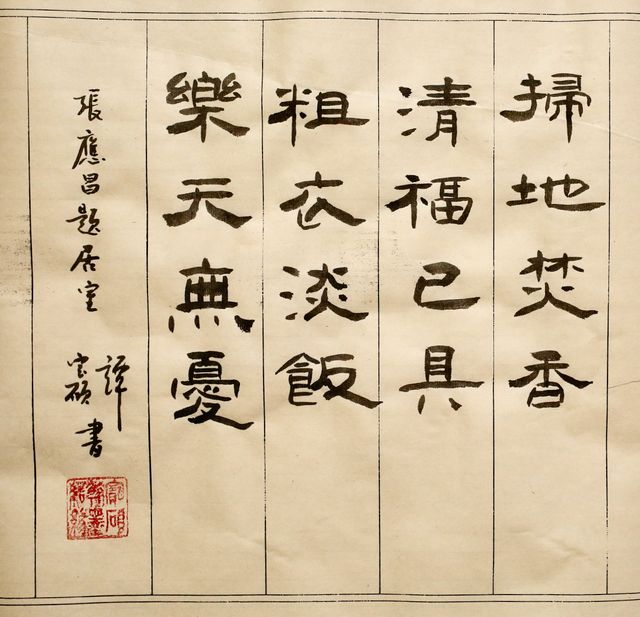 掃地焚香
清福已具
粗衣淡飯
樂天無憂
張應昌題居室
譚寶碩書